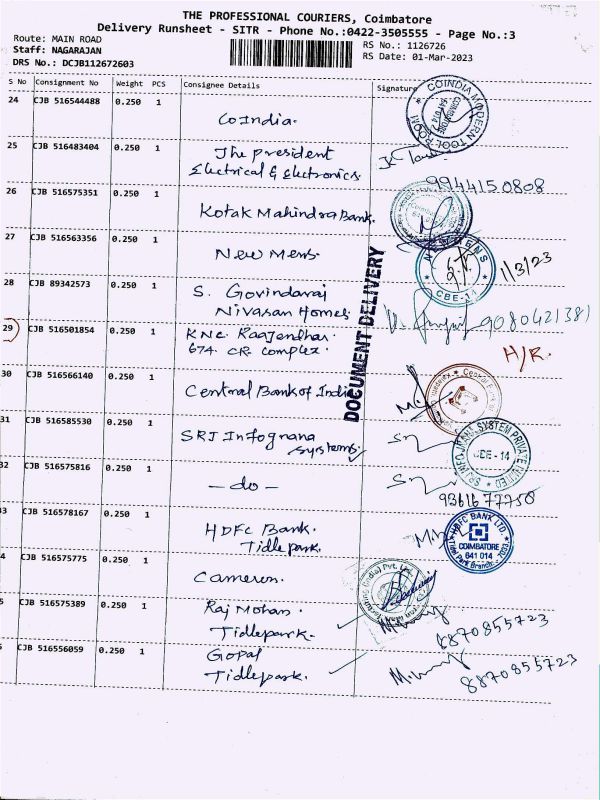 THE PROFESSIONAL COURIERS, Coimbatore
Delivery Runsheet - SITR - Phone No.:0422-3505555 - Page No.:3
Route: MAIN ROAD
RS No.: 1126726
Staff: NAGARAJAN
RS Date: 01-Mar-2023
DRS No.: DCJB112672603
S No Consignment No Weight PCS Consignee Details Signature
24 CJB 516544488 0.250 1
CoIndia.
COINDIA MODERN TOOL ROOM
COIMBATORE
641 014
25 CJB 516483404 0.250 1
The president
Electrical & Electronics.
9944150808
26 CJB 516575351 0.250 1
Kotak Mahindra Bank.
27 CJB 516563356 0.250 1
New Mens.
NEW MENS
CBE-11
1/3/23
DOCUMENT DELIVERY
28 CJB 89342573 0.250 1
S. Govindaraj
Nivasan Homes.
9080421381
29 CJB 516501854 0.250 1
KNC. Raajendhar.
674. CR. Complex.
H/R.
30 CJB 516566140 0.250 1
Central Bank of India
31 CJB 516585530 0.250 1
SRJ Infognana
Systems.
SYSTEM PRIVATE LIMITED
CBE - 14
32 CJB 516575816 0.250 1
— do —
93616 77750
33 CJB 516578167 0.250 1
HDFC Bank.
Tidlepark.
HDFC BANK LTD.
COIMBATORE
641 014
4 CJB 516575775 0.250 1
Cameron.
Pvt. Ltd.
5 CJB 516575389 0.250 1
Raj Mohan.
Tidlepark.
8870855723
CJB 516556059 0.250 1
Gopal
Tidlepark.
8870855723